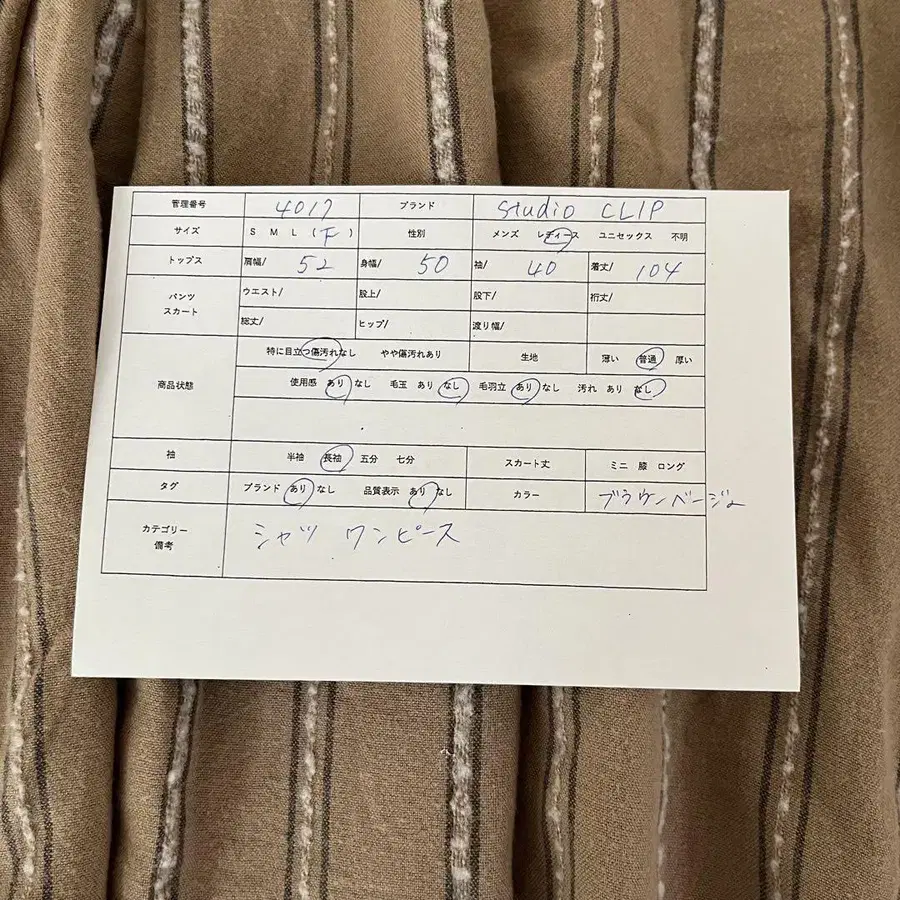 管理番号 4017 ブランド studio CLIP
サイズ S M L (F) 性別 メンズ レディース ユニセックス 不明
トップス 肩幅/ 52 身幅/ 50 袖/ 40 着丈/ 104
パンツ スカート ウエスト/ 股上/ 股下/ 裄丈/
総丈/ ヒップ/ 渡り幅/
商品状態 特に目立つ傷汚れなし やや傷汚れあり 生地 薄い 普通 厚い
使用感 あり なし 毛玉 あり なし 毛羽立 あり なし 汚れ あり なし
袖 半袖 長袖 五分 七分 スカート丈 ミニ 膝 ロング
タグ ブランド あり なし 品質表示 あり なし カラー ブラウンベージュ
カテゴリー 備考 シャツ ワンピース